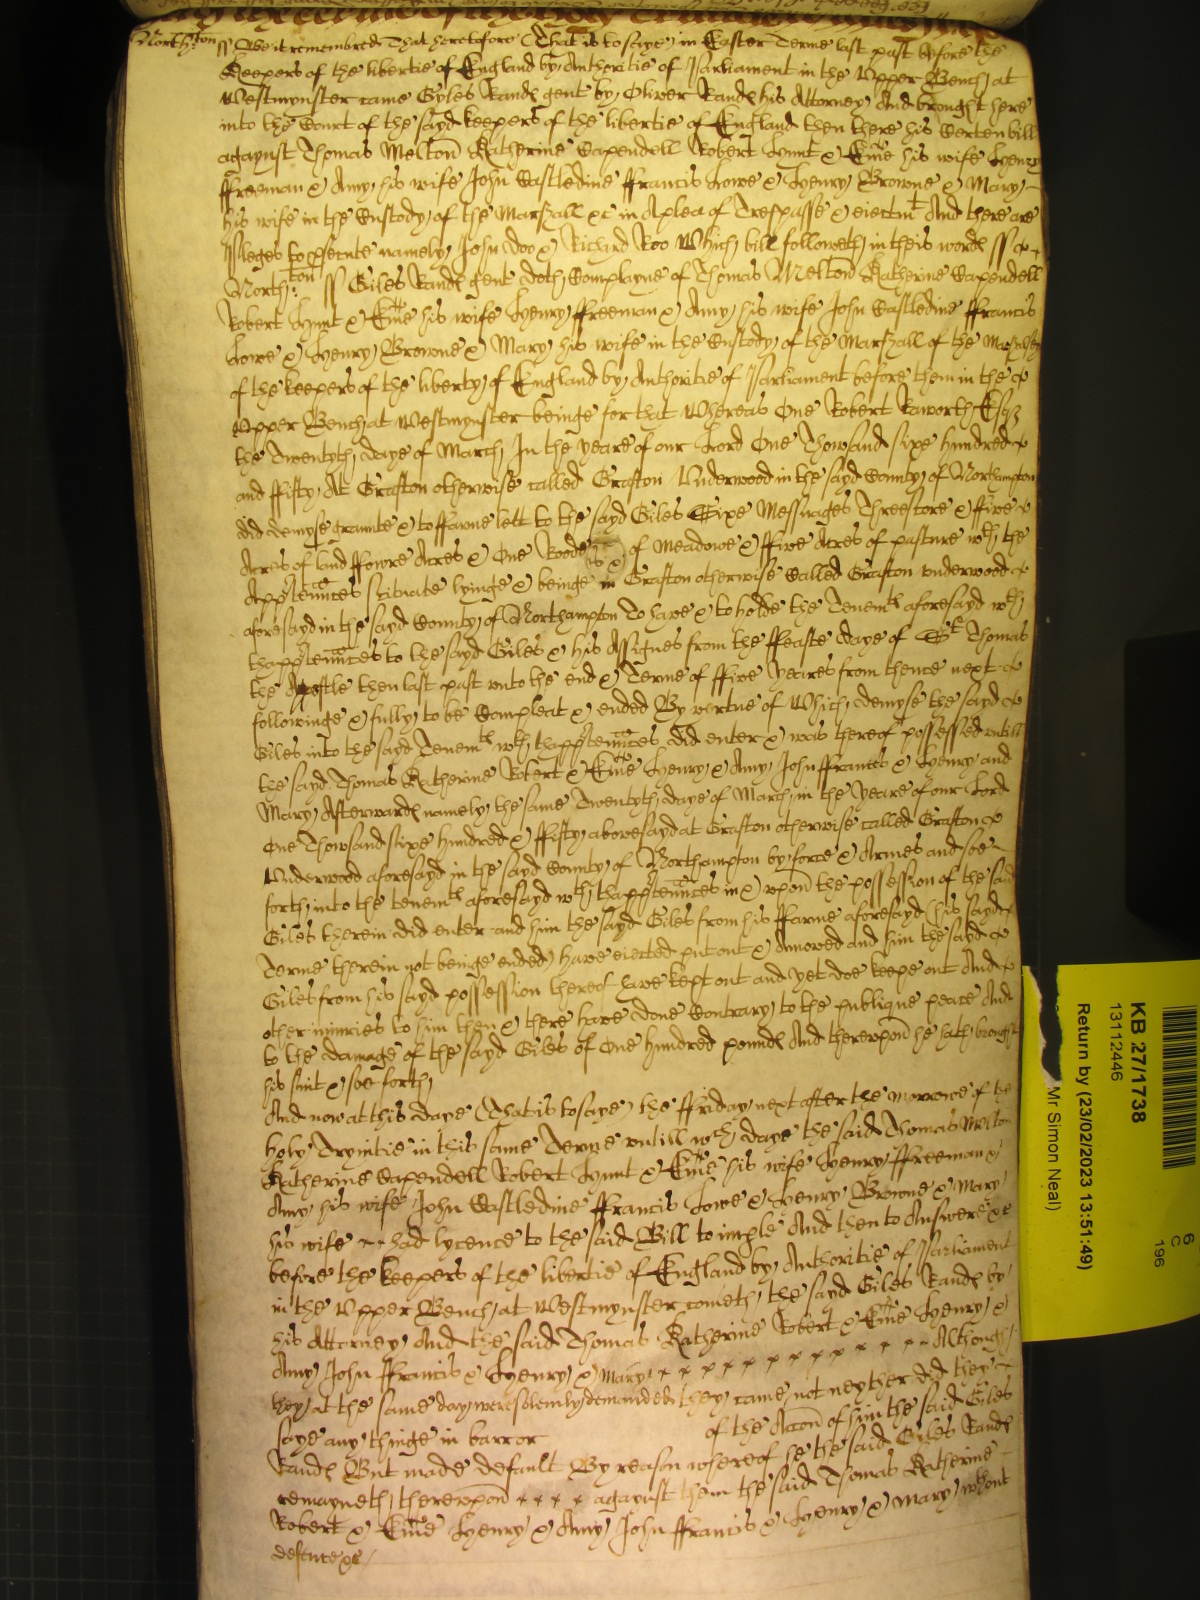 North:ton ss Be it remembred That heretofore (That is to saye) in Easter Terme last past before the
Keepers of the libertie of England by Authoritie of Parliament in the Upper Bench at
Westmynster came Gyles Rands gent by Oliver Rands his Attorney And brought here
into the Court of the sayd keepers of the libertie of England then there his Certen bill
agaynst Thomas Melton Katherine Capendell Robert Hunt & his wife Henry
ffreeman & Amy his wife John Castledine ffrancis Lowe & Henry Browne & Mary
his wife in the Custody of the Marshall &c in A plea of Trespasse & eiectmt And there are
pledges to psecute namely John Doo & Richard Roo Which bill followeth in theis words ss
North:ton ss Giles Rands gent doth Complayne of Thomas Melton Katherine Capendell
Robert Hunt & his wife Henry ffreeman & Amy his wife John Castledine ffrancis
Lowe & Henry Browne & Mary his wife in the Custody of the Marshall of the Marshalsey
of the keepers of the liberty of England by Authoritie of Parliament before them in the
Upper Bench at Westmynster beinge for that Whereas One Robert Raworth Esqr
the Twentyth daye of March In the yeare of our Lord One Thowsand sixe hundred
and ffifty At Grafton otherwise called Grafton Underwood in the sayd County of Northampton
did demyse graunte & to ffarme lett to the sayd Giles Sixe Messuages Threescore & ffive
Acres of land ffowre Acres & One Roode of Meadowe & ffive Acres of pasture wth the
Appteunces scituate lyinge & beinge in Grafton otherwise Called Grafton underwood
aforesayd in the sayd County of Northampton To have & to holde the Tenemts aforesayd wth
thappteunces to the sayd Giles & his Assignes from the ffeaste daye of St Thomas
the Apostle then last past unto the end & Terme of ffive yeares from thence next
followinge & fully to be Compleat & ended By vertue of Which demyse the sayd
Giles into the sayd Tenemts wth thappteunces did enter & was thereof possessed untill
the sayd Thomas Katherine Robert & Henry & Amy John ffrancis & Henry and
Mary Afterwards namely the same Twentyth daye of March in the yeare of our Lord
One Thowsand sixe hundred & ffifty abovesayd at Grafton otherwise called Grafton
Underwood aforesayd in the sayd County of Northampton by force & Armes and soe
forth into the tenemts aforesayd wth thappteunces in & upon the possession of the said
Giles therein did enter and him the sayd Giles from his ffarme aforesayd (his sayd
Terme therein not beinge ended) have eiected put out & Amoved and him the sayd
Giles from his sayd possession thereof have kept out and yet doe keepe out And
other iniuries to him then & there have done Contrary to the publique peace And
to the damage of the sayd Giles of One hundred pounds And thereupon he hath brought
his suit & soe forth
And now at this daye (That is to saye) the ffriday next after the morrowe of the
holy Trynitie in this same Terme untill wch daye the said Thomas Melton
Katherine Capendell Robert Hunt & his wife Henry ffreeman &
Amy his wife John Castledine ffrancis Lowe & Henry Browne & Mary
his wife had lycence to the said Bill to imple And then to Answere &c
before the keepers of the libertie of England by Authoritie of Parliament
in the Upper Bench at Westmynster cometh the sayd Giles Rands by
his Attorney And the said Thomas Katherine Robert & Henry &
Amy John ffrancis & Henry & Mary Although
they at the same day were solemly demanded they came not neyther did they
saye any thinge in barror of the Accon of him the said Giles
Rands But made default By reason whereof he the said Giles Rands
remayneth thereupon agaynst them the said Thomas Katherine
Robert & Henry & Amy John ffrancis & Henry & Mary wthout
defence &c
KB 27/1738
13112446
Return by (23/02/2023 13:51:49)
Mr Simon Neal)
6
C
196